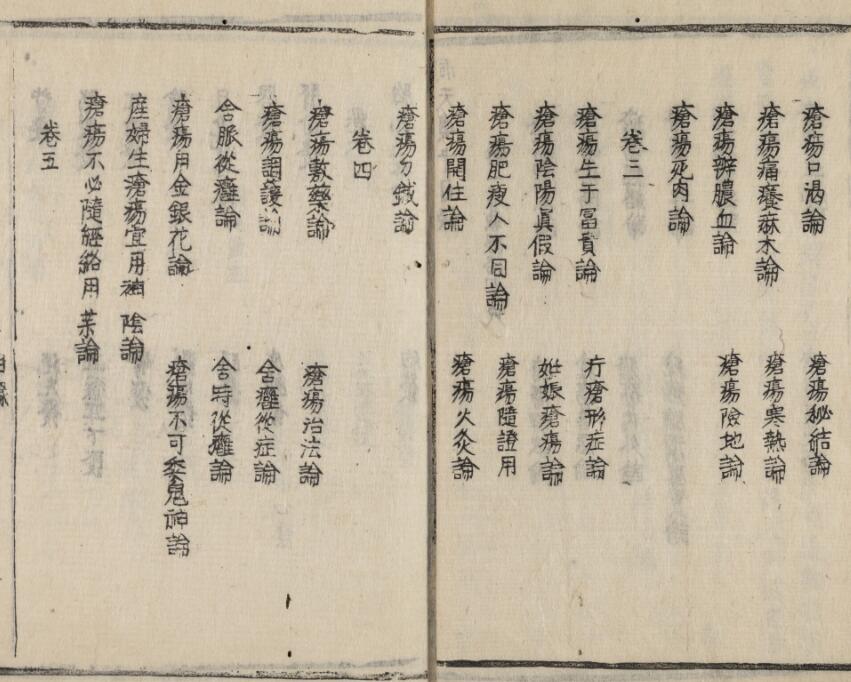 瘡瘍口渴論 瘡瘍秘結論
瘡瘍痛癢麻木論 瘡瘍寒熱論
瘡瘍辨膿血論 瘡瘍險地論
瘡瘍死肉論
卷三
瘡瘍生于冨貴論 疔瘡形症論
瘡瘍陰陽眞假論 妊娠瘡瘍論
瘡瘍肥瘦人不同論 瘡瘍隨證用
瘡瘍開住論 瘡瘍火灸論
瘡瘍刀鍼論
卷四
瘡瘍敷藥論 瘡瘍治法論
瘡瘍調護論 舍癰從症論
舍脈從癰論 舍時從癰論
瘡瘍用金銀花論 瘡瘍不可委鬼神論
産婦生瘡瘍宜用補陰論
瘡瘍不必隨經絡用藥論
卷五